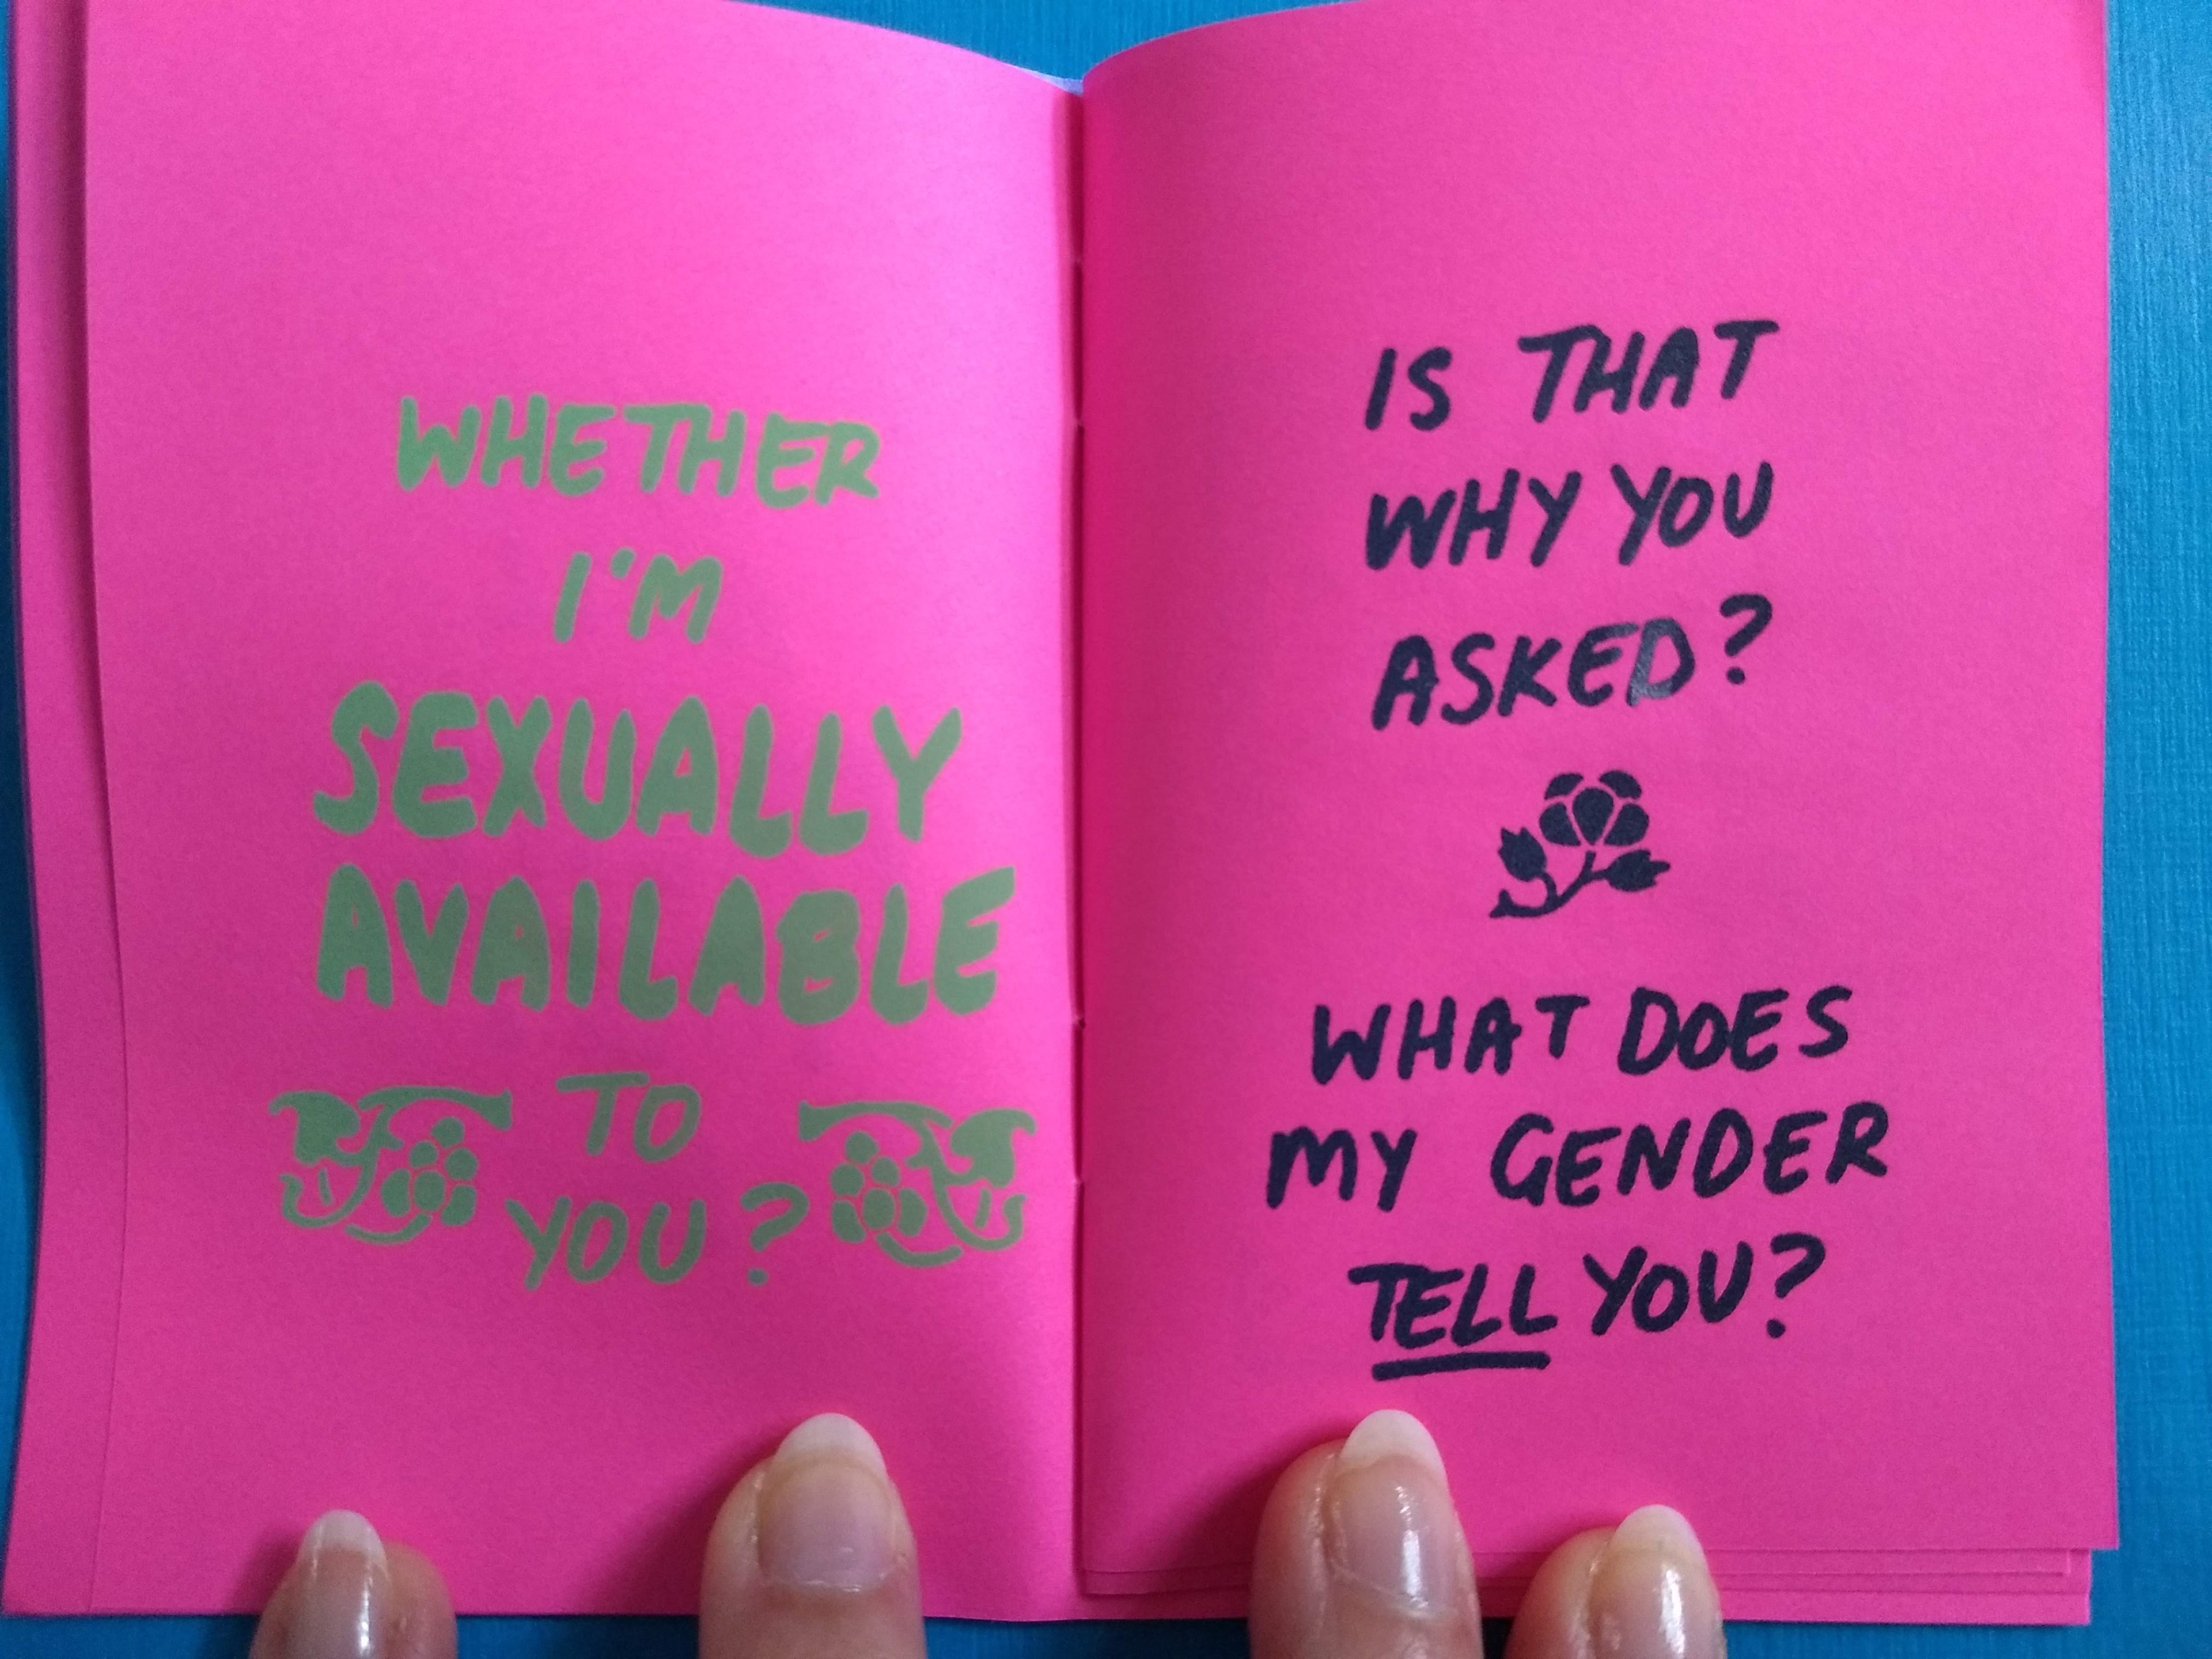 WHETHER
I'M
SEXUALLY
AVAILABLE
TO
YOU?
IS THAT
WHY YOU
ASKED?
WHAT DOES
MY GENDER
TELL YOU?